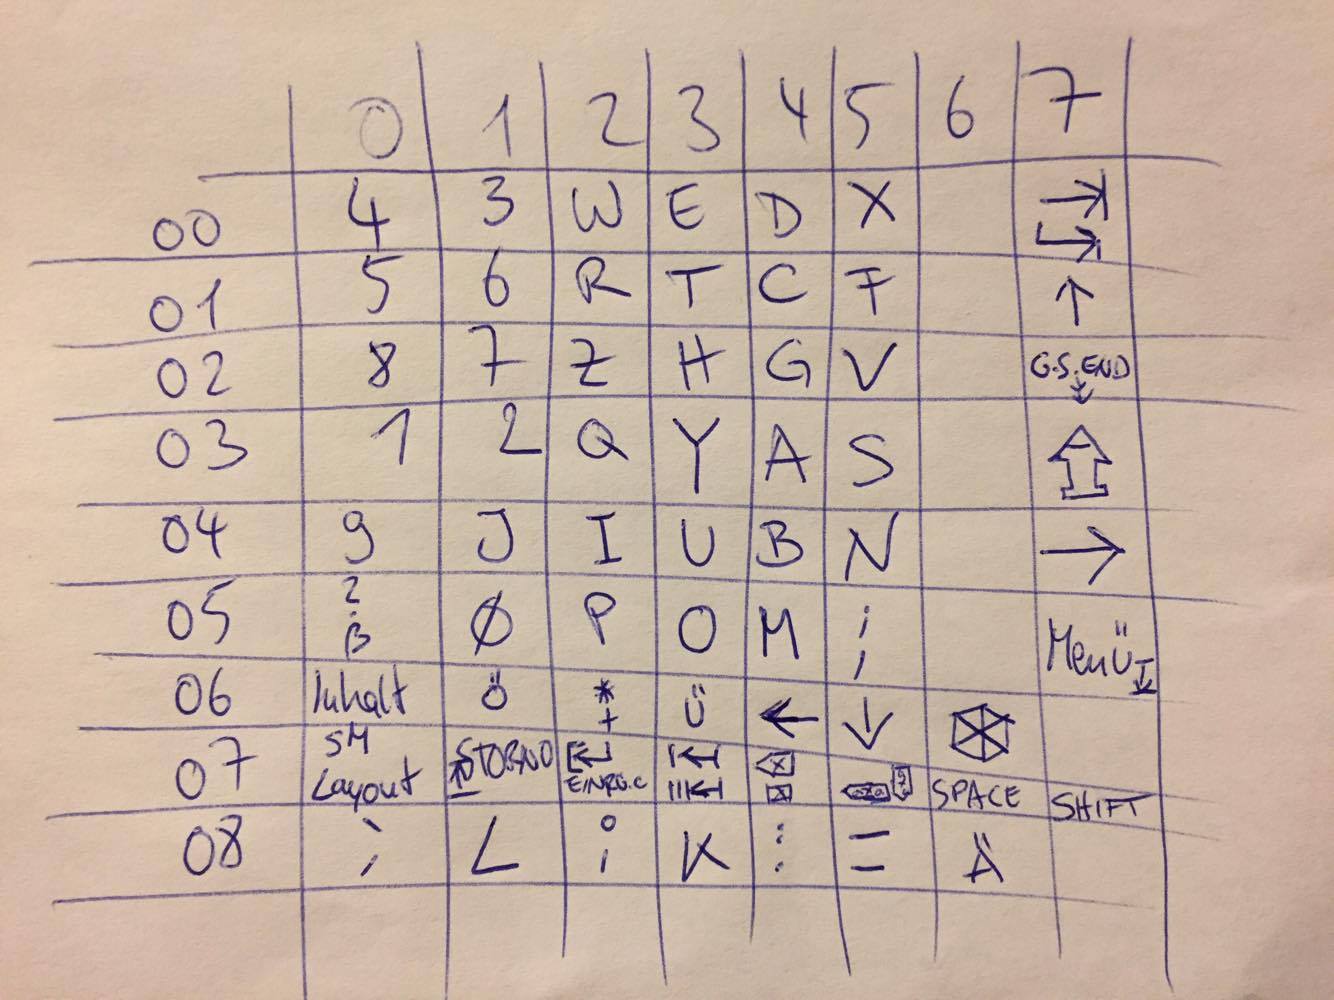 0 1 2 3 4 5 6 7
00 4 3 W E D X
01 5 6 R T C F ↑
02 8 7 Z H G V G.S.END
03 1 2 Q Y A S
04 9 J I U B N →
05 ? ß Ø P O M ; Menü
06 Inhalt Ö * + Ü ← ↓
07 SM Layout STORNO EINRÜ.C SPACE SHIFT
08 L K = Ä